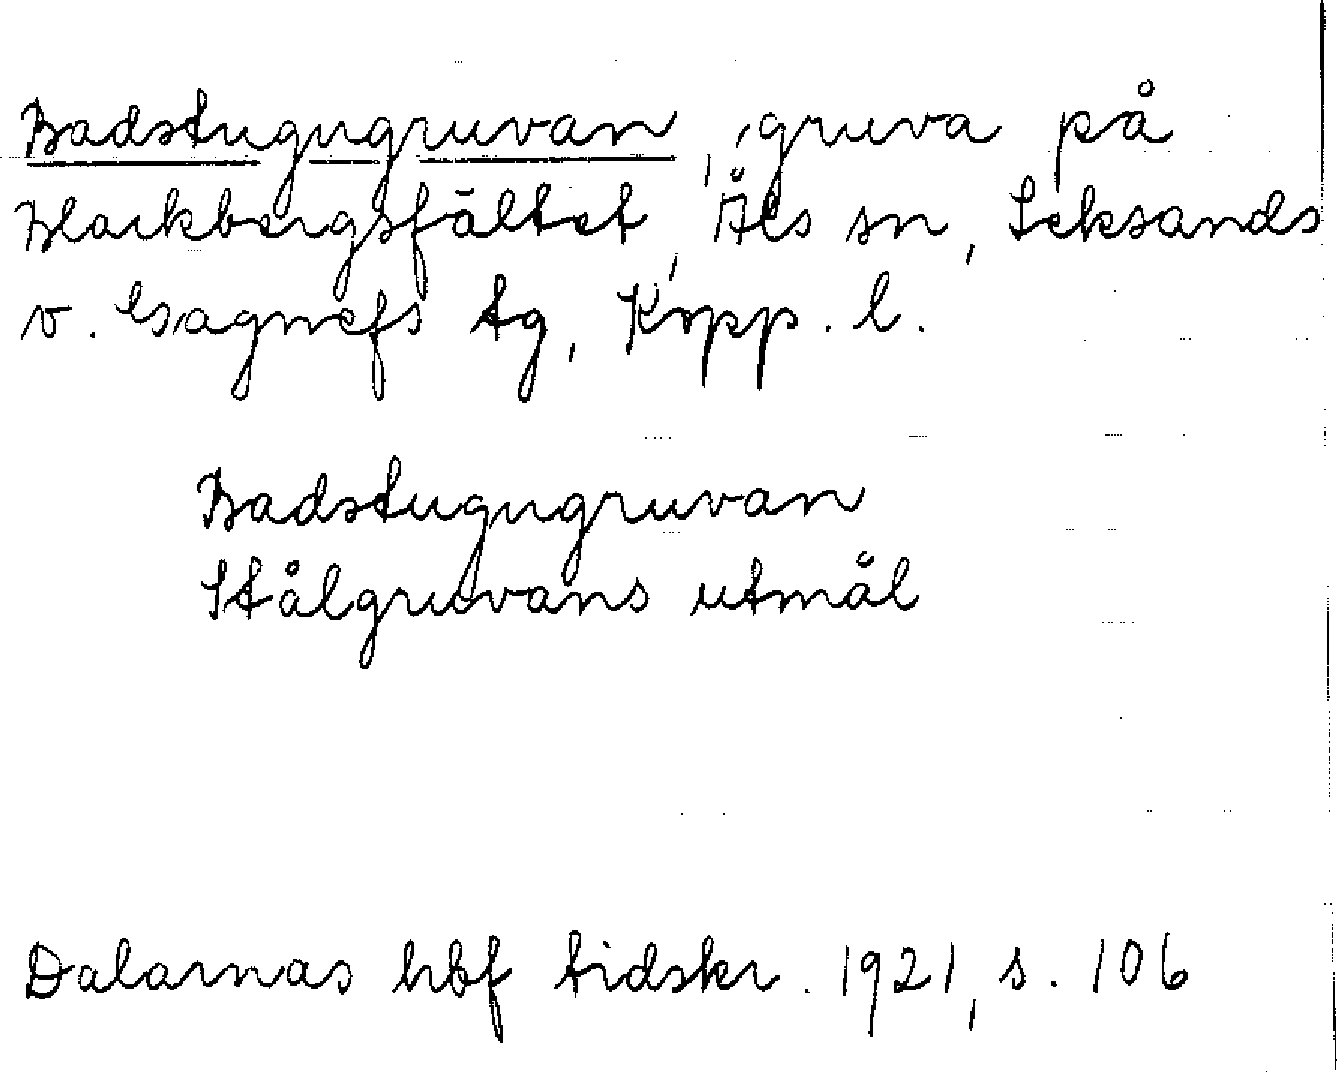 Badstugugruvan, gruva på
Blackbergsfältet, Åls sn, Leksands
o. Gagnefs tg, Kopp. l.
Badstugugruvan
Stålgruvans utmål
Dalarnas hbf tidskr. 1921, s. 106